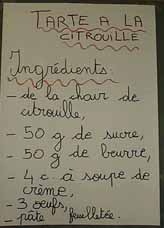 TARTE A LA
CITROUILLE
Ingrédients:
- de la chair de
citrouille,
- 50 g de sucre,
- 50 g de beurre,
- 4 c. à soupe de
crème,
- 3 oeufs,
- pâte feuilletée.